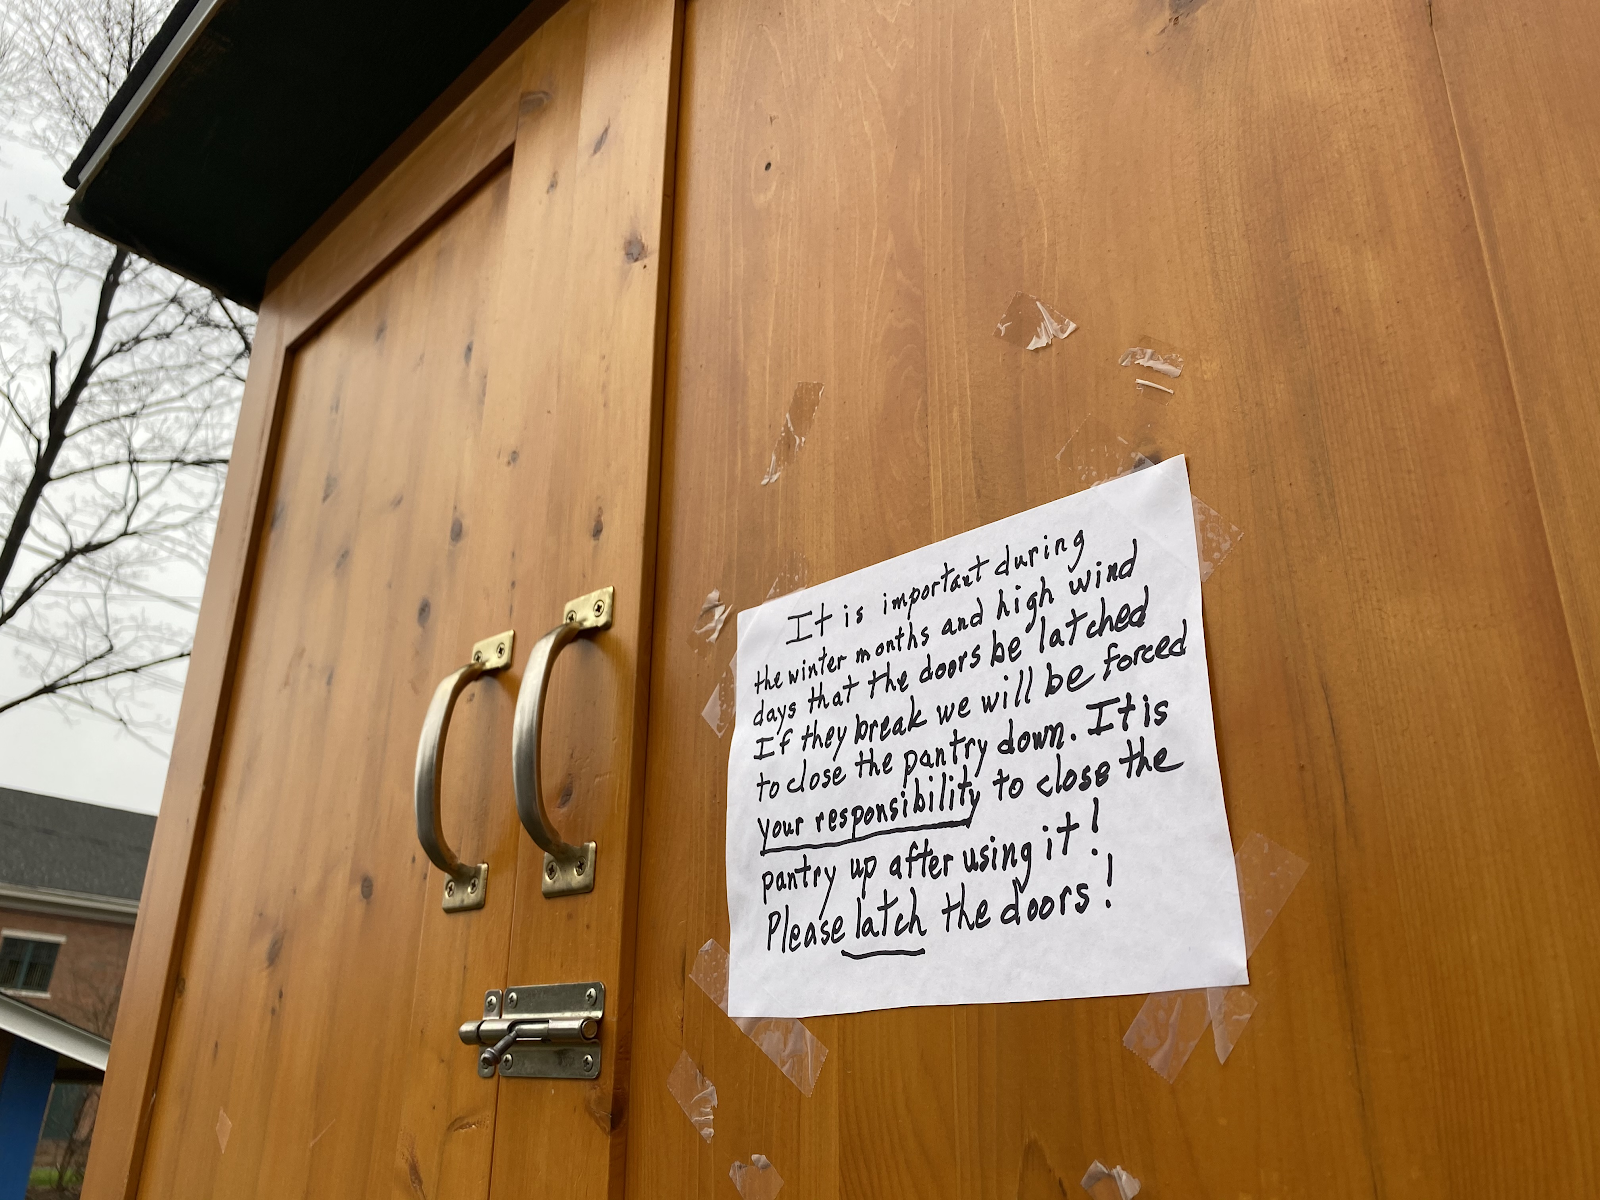 It is important during
the winter months and high wind
days that the doors be latched
If they break we will be forced
to close the pantry down. It is
your responsibility to close the
pantry up after using it!
Please latch the doors!